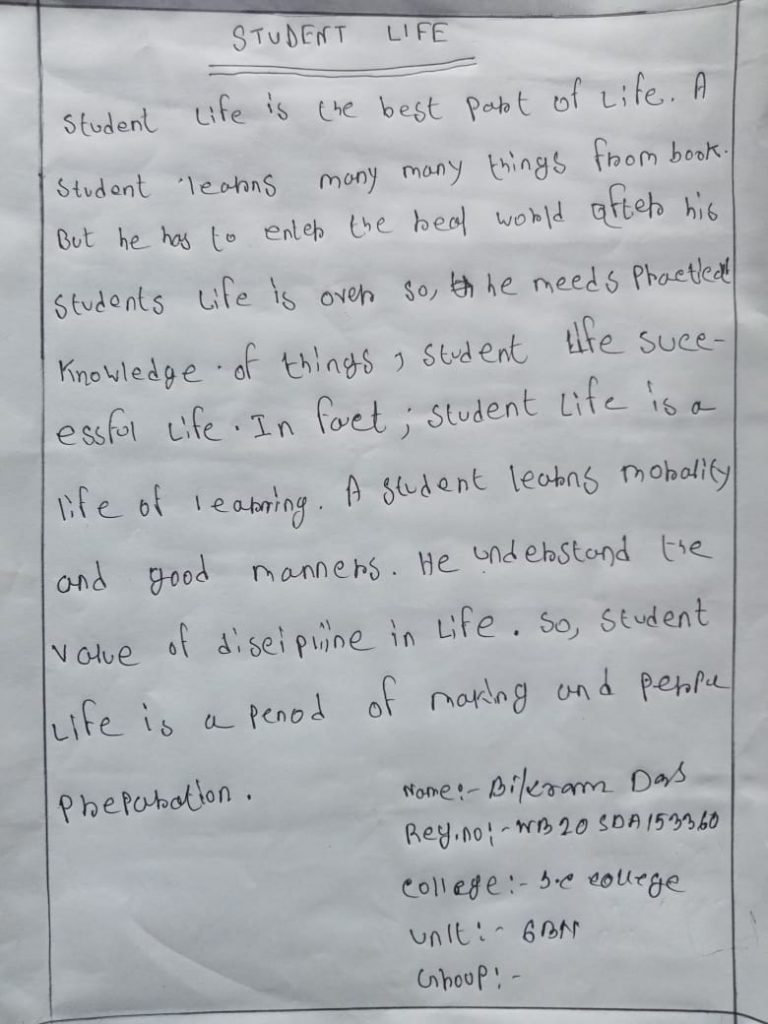 STUDENT LIFE
Student Life is the best part of Life. A
Student learns many many things from book.
But he has to enter the real world after his
Students Life is over so, he needs Practical
Knowledge of things, Student life succ-
essful Life. In fact; Student Life is a
life of learning. A student learns morality
and good manners. He understand the
value of discipline in Life. So, Student
Life is a period of making and
Preparation.
Name:- Bikram Das
Reg.no:- WB20SDA153360
College:- S.C College
Unit:- 6BN
Group:-